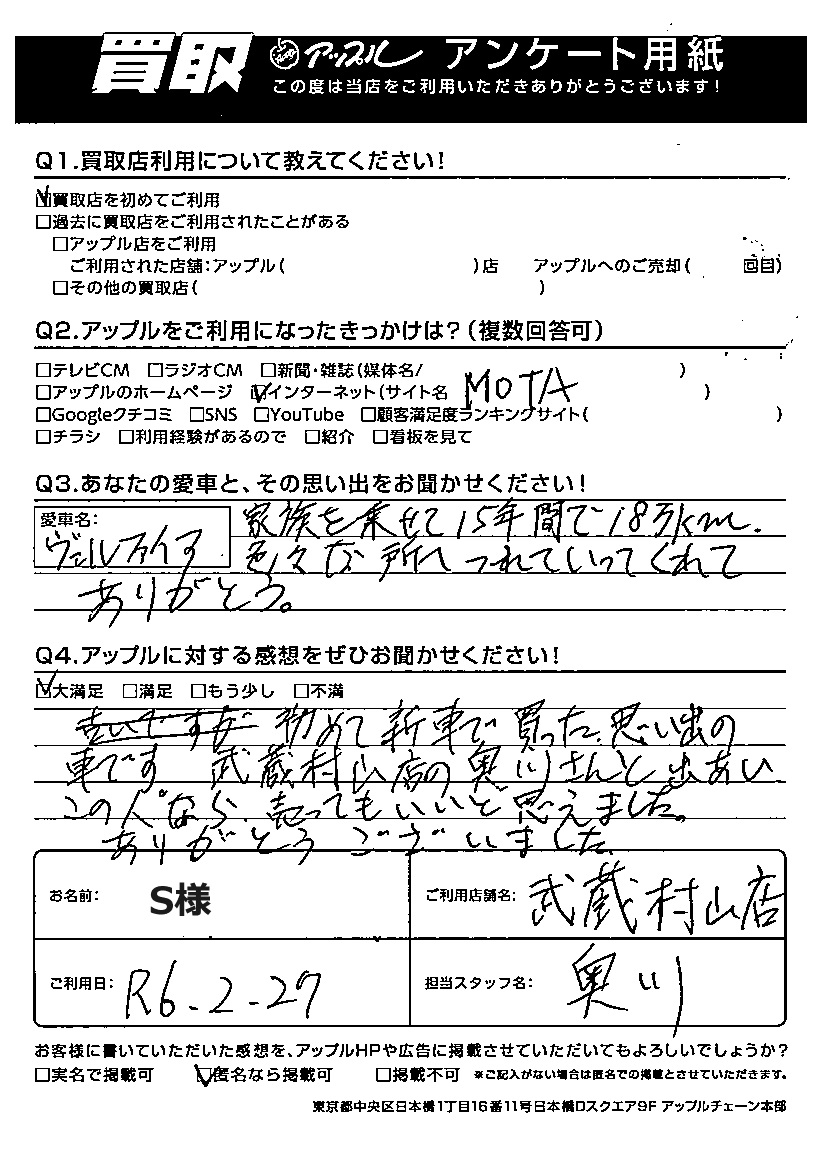 買取 アップル アンケート用紙
この度は当店をご利用いただきありがとうございます!
Q1.買取店利用について教えてください!
☑買取店を初めてご利用
□過去に買取店をご利用されたことがある
□アップル店をご利用
ご利用された店舗:アップル( )店 アップルへのご売却( 回目)
□その他の買取店( )
Q2.アップルをご利用になったきっかけは?(複数回答可)
□テレビCM □ラジオCM □新聞・雑誌(媒体名/ )
□アップルのホームページ ☑インターネット(サイト名 MOTA )
□Googleクチコミ □SNS □YouTube □顧客満足度ランキングサイト( )
□チラシ □利用経験があるので □紹介 □看板を見て
Q3.あなたの愛車と、その思い出をお聞かせください!
愛車名:
ヴェルファイア 家族を乗せて15年間で18万km.
色々な所へつれていってくれて
ありがとう。
Q4.アップルに対する感想をぜひお聞かせください!
☑大満足 □満足 □もう少し □不満
初めて新車で買った、思い出の
車です 武蔵村山店の奥川さんと出あい
この人なら、売ってもいいと思えました。
ありがとうございました
お名前: S様 ご利用店舗名: 武蔵村山店
ご利用日: R6-2-27 担当スタッフ名: 奥川
お客様に書いていただいた感想を、アップルHPや広告に掲載させていただいてもよろしいでしょうか?
□実名で掲載可 ☑匿名なら掲載可 □掲載不可 ※ご記入がない場合は匿名での掲載とさせていただきます。
東京都中央区日本橋1丁目16番11号日本橋Dスクエア9F アップルチェーン本部